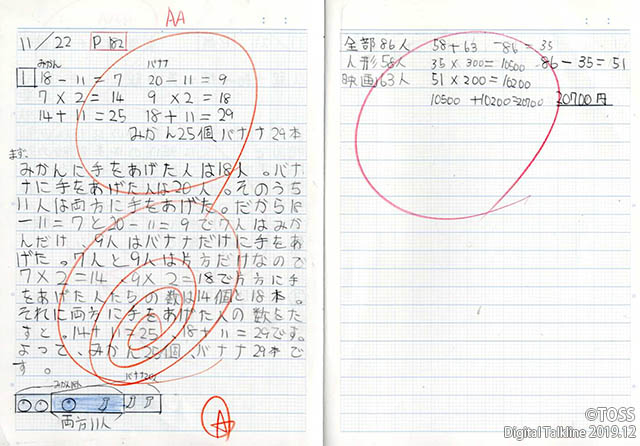 AA
11/22 P182
みかん バナナ
1 18-11=7 20-11=9
7×2=14 9×2=18
14+11=25 18+11=29
みかん25個 バナナ29本
まず、
みかんに手をあげた人は18人。バナ
ナに手をあげた人は20人。そのうち
11人は両方に手をあげた。だから18
-11=7と20-11=9で7人はみか
んだけ、9人はバナナだけに手をあ
げた。7人と9人は片方だけなので
7×2=14、9×2=18で片方に手
をあげた人たちの数は14個と18本。
それに両方に手をあげた人の数をた
すと。14+11=25、18+11=29です。
よって、みかん25個、バナナ29本で
す。
みかん18人 バナナ20人
両方11人
A
全部86人 58+63-86=35
人形58人 35×300=10500 86-35=51
映画63人 51×200=10200
10500+10200=20700 20700円
©TOSS
Digital Talkline 2019.12